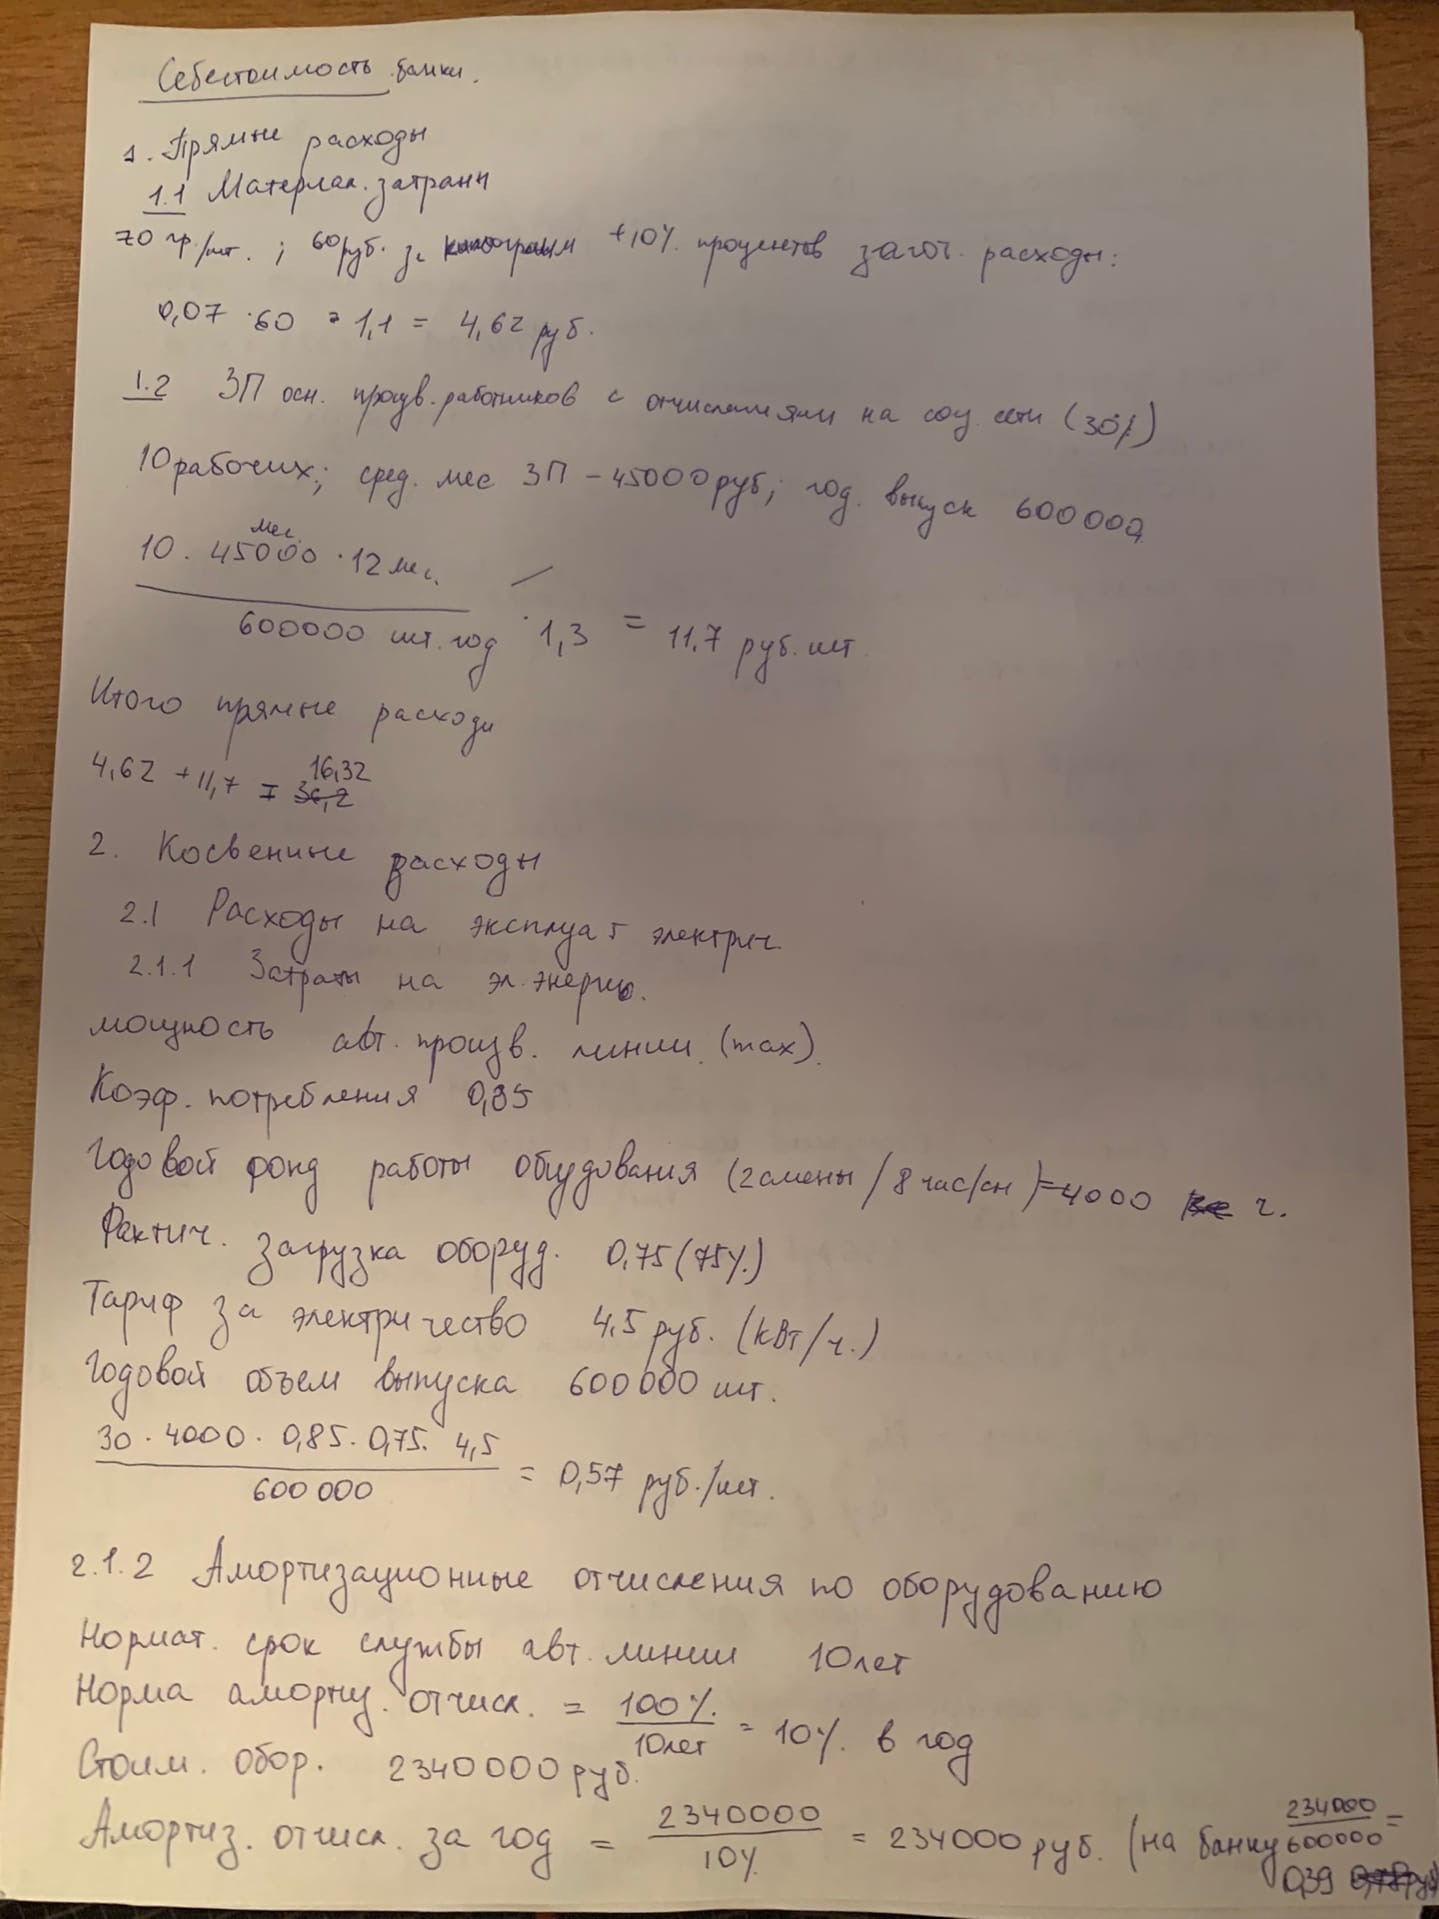 Себестоимость банки.
1. Прямые расходы
1.1 Материал. затраты
70 гр./шт. ; 60 руб. за килограмм +10% процентов загот. расходы:
0,07 · 60 · 1,1 = 4,62 руб.
1.2 ЗП осн. произв. работников с отчислениями на соц. сети (30%)
10 рабочих; сред. мес ЗП - 45000 руб; год. выпуск 600000
мес.
10 . 45000 · 12 мес.
600000 шт. год · 1,3 = 11,7 руб. шт.
Итого прямые расходы
16,32
4,62 + 11,7 =
2. Косвенные расходы
2.1 Расходы на эксплуат электрич.
2.1.1 Затраты на эл. энергию.
мощность авт. произв. линии (max).
Коэф. потребления 0,85
Годовой фонд работы обрудования (2 смены / 8 час/см) = 4000 ч.
Фактич. загрузка оборуд. 0,75 (75%)
Тариф за электричество 4,5 руб. (кВт/ч.)
Годовой объем выпуска 600000 шт.
30 · 4000 · 0,85 · 0,75. 4,5
600 000 = 0,57 руб./шт.
2.1.2 Амортизационные отчисления по оборудованию
Нормат. срок службы авт. линии 10 лет
Норма амортиз. отчисл. = 100%. / 10 лет = 10%. в год
Стоим. обор. 2340000 руб.
Амортиз. отчисл. за год = 2340000 / 10% = 234000 руб. (на банку 234000 / 600000 =
0,39